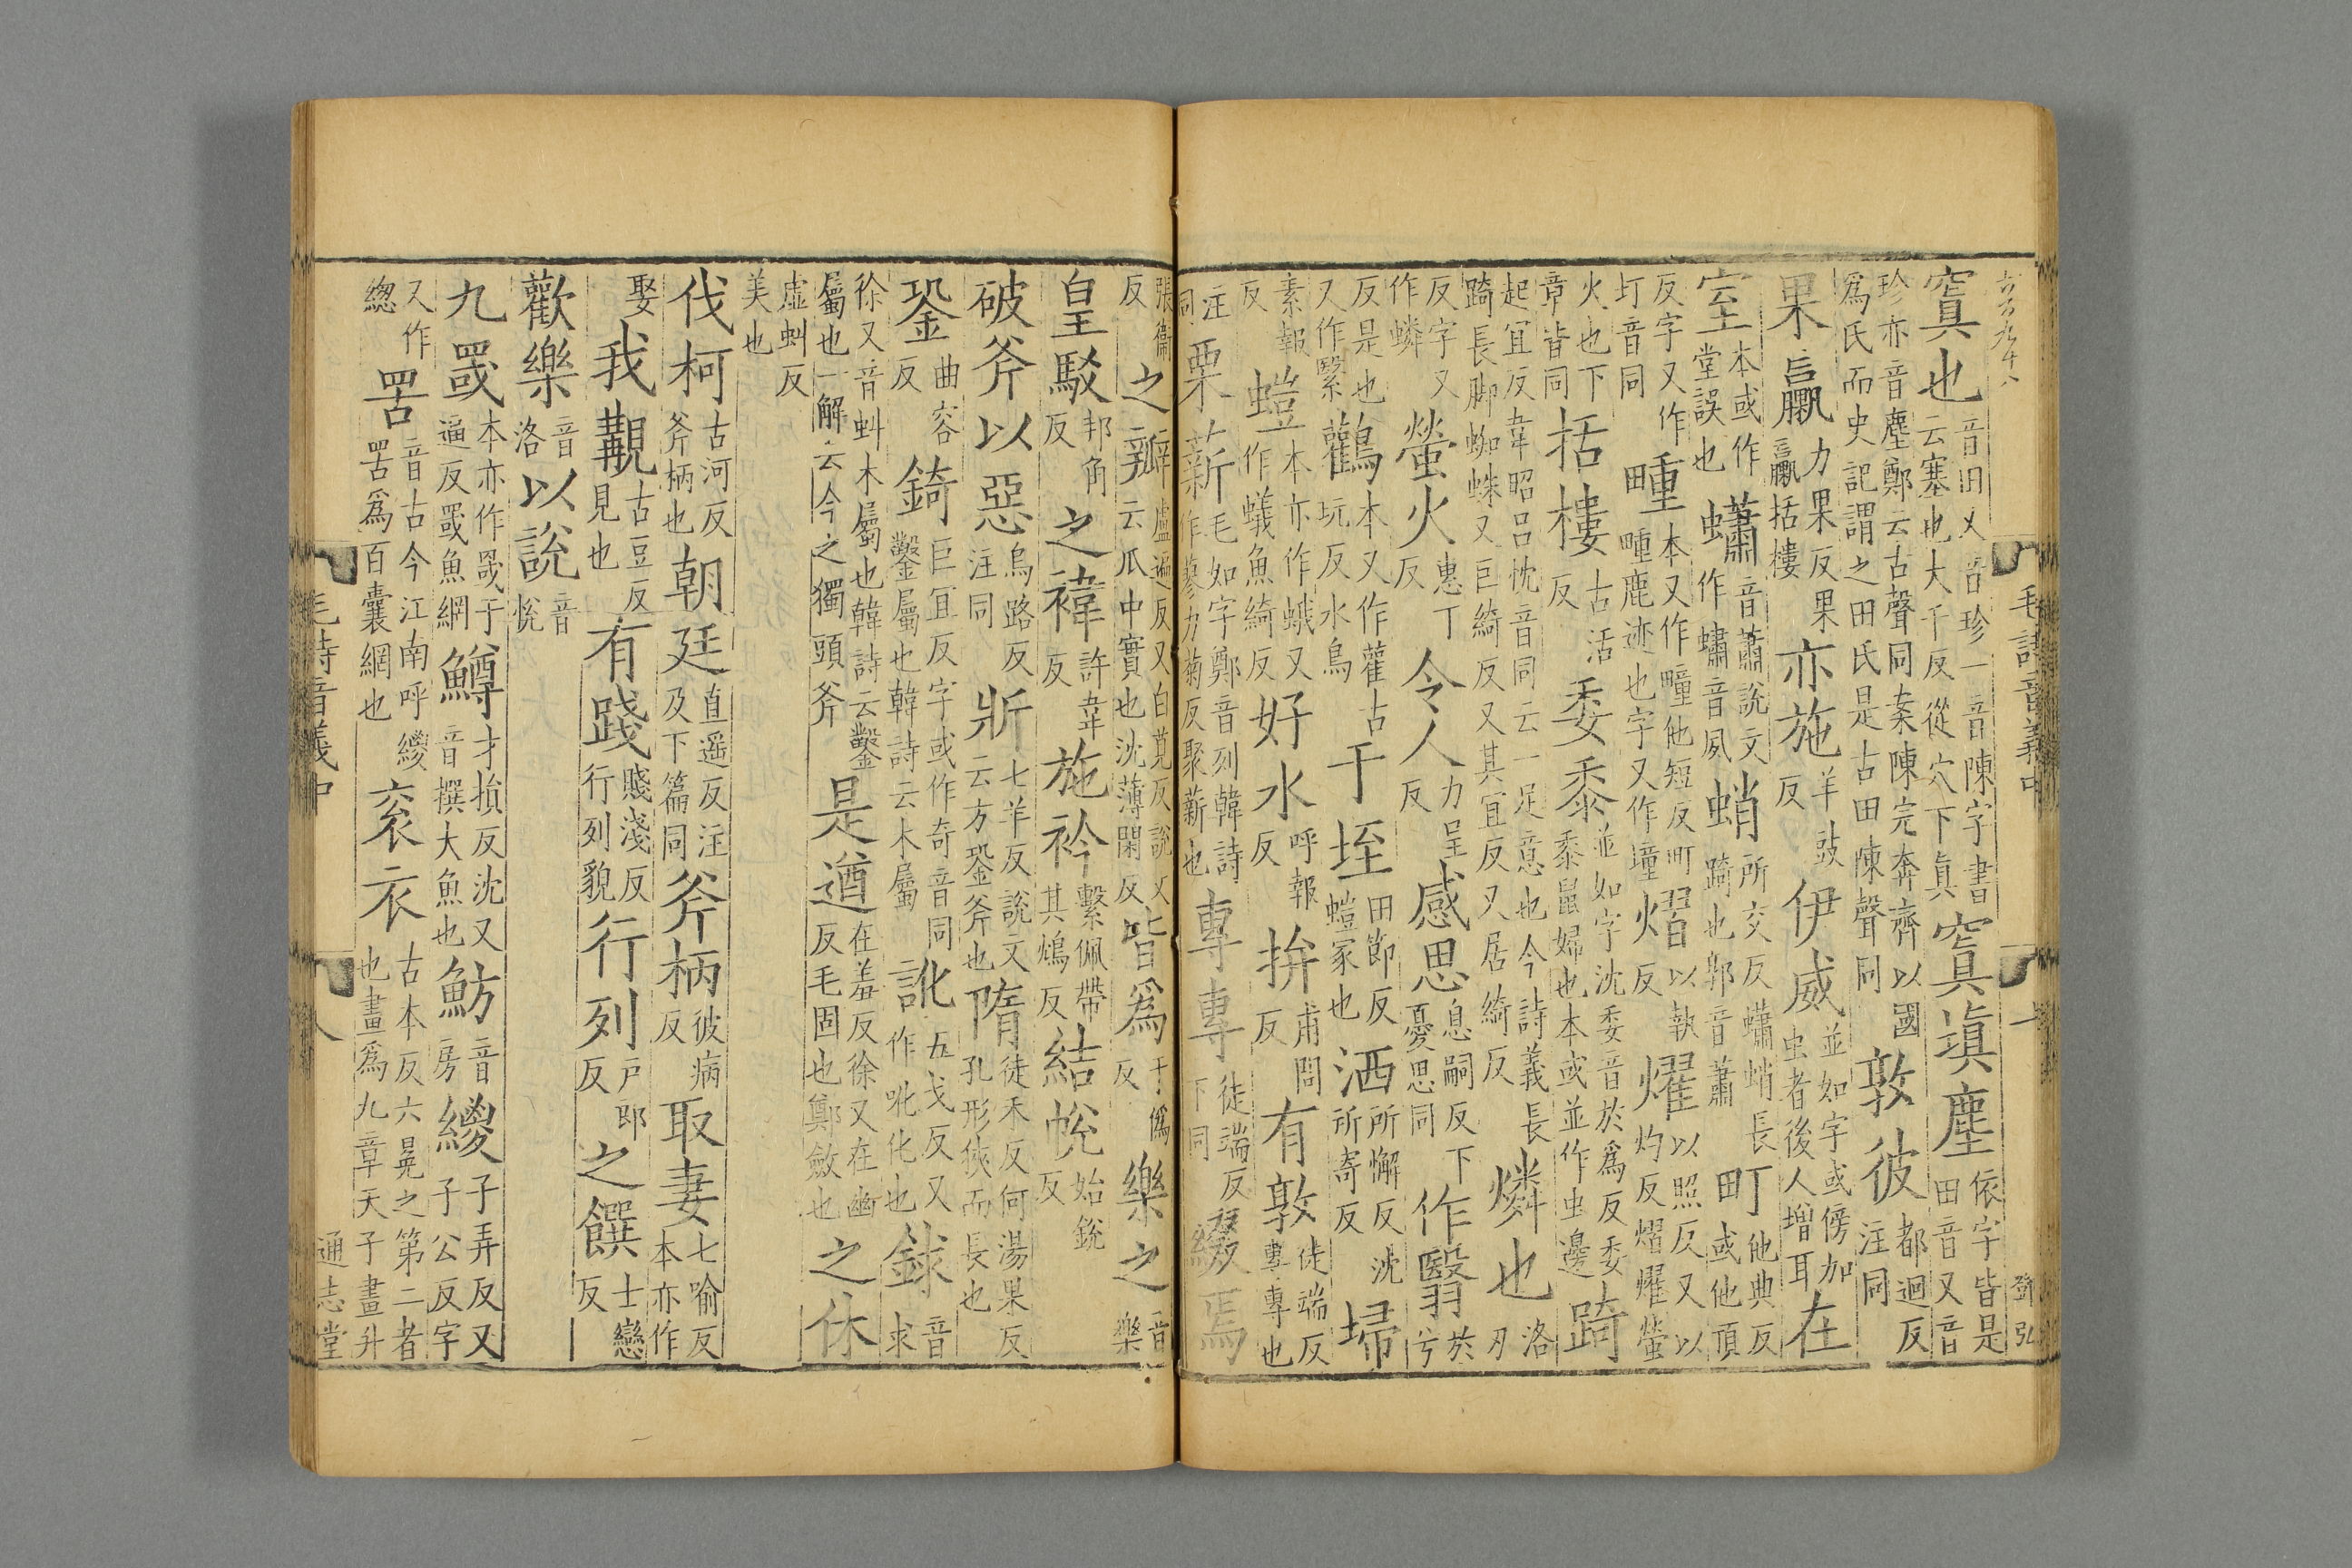 六百九十八
毛詩音義中 一 鄧弘
窴也音田又音珍一音陳字書云塞也大千反從穴下真窴填塵依字皆是田音又音
珍亦音塵鄭云古聲同案陳完奔齊以國爲氏而史記謂之田氏是古田陳聲同敦彼都迴反注同
果臝力果反果臝括樓亦施羊豉反伊威並如字或傍加虫者後人增耳在
室本或作堂誤也蠨音蕭說文作蟰音夙蛸所交反蠨蛸長踦也郭音蕭町他典反或他頂
反字又作圢音同畽本又作疃他短反町畽鹿迹也字又作墥熠以執反燿以照反又以灼反熠燿螢
火也下章皆同括樓古活反委黍並如字沈委音於爲反委黍鼠婦也本或並作虫邊踦
起宜反韋昭呂忱音同云一足意也今詩義長踦長脚蜘蛛又巨綺反又其宜反又居綺反燐也洛刃
反字又作螢火惠丁反令人力呈反感思息嗣反下憂思同作翳於兮
反是也又作繄鸛本又作雚古玩反水鳥于垤田節反螘冢也洒所懈反沈所寄反埽
素報反螘本亦作蛾又作蟻魚綺反好水呼報反拚甫問反有敦徒端反專專也
注同栗薪毛如字鄭音列韓詩作蓼力菊反聚薪也專專徒端反下同綴焉
張衞反之瓣盧遍反又白莧反說文云瓜中實也沈薄閑反皆爲于僞反樂之音樂
皇駁邦角反之褘許韋反施衿繫佩帶其鴆反結帨始銳反
破斧以惡烏路反注同斨七羊反說文云方銎斧也隋徒禾反何湯果反孔形狹而長也
銎曲容反錡巨宜反字或作奇音同鑿屬也韓詩云木屬訛五戈反又作吪化也銶音求
徐又音虯木屬也韓詩云鑿屬也一解云今之獨頭斧是遒在羞反徐又在幽反毛固也鄭斂也之休
虛虯反美也
伐柯古河反斧柄也朝廷直遥反注及下篇同斧柄彼病反取妻七喻反本亦作
娶我覯古豆反見也有踐賤淺反行列貌行列戶郎反之饌士戀反
歡樂音洛以說音悅
九罭本亦作罭于逼反罭魚網鱒才損反沈又音撰大魚也魴音房緵子弄反又子公反字
又作總罟音古今江南呼緵罟爲百囊網也衮衣古本反六冕之第二者也畫爲九章天子畫升
毛詩音義中 八 通志堂